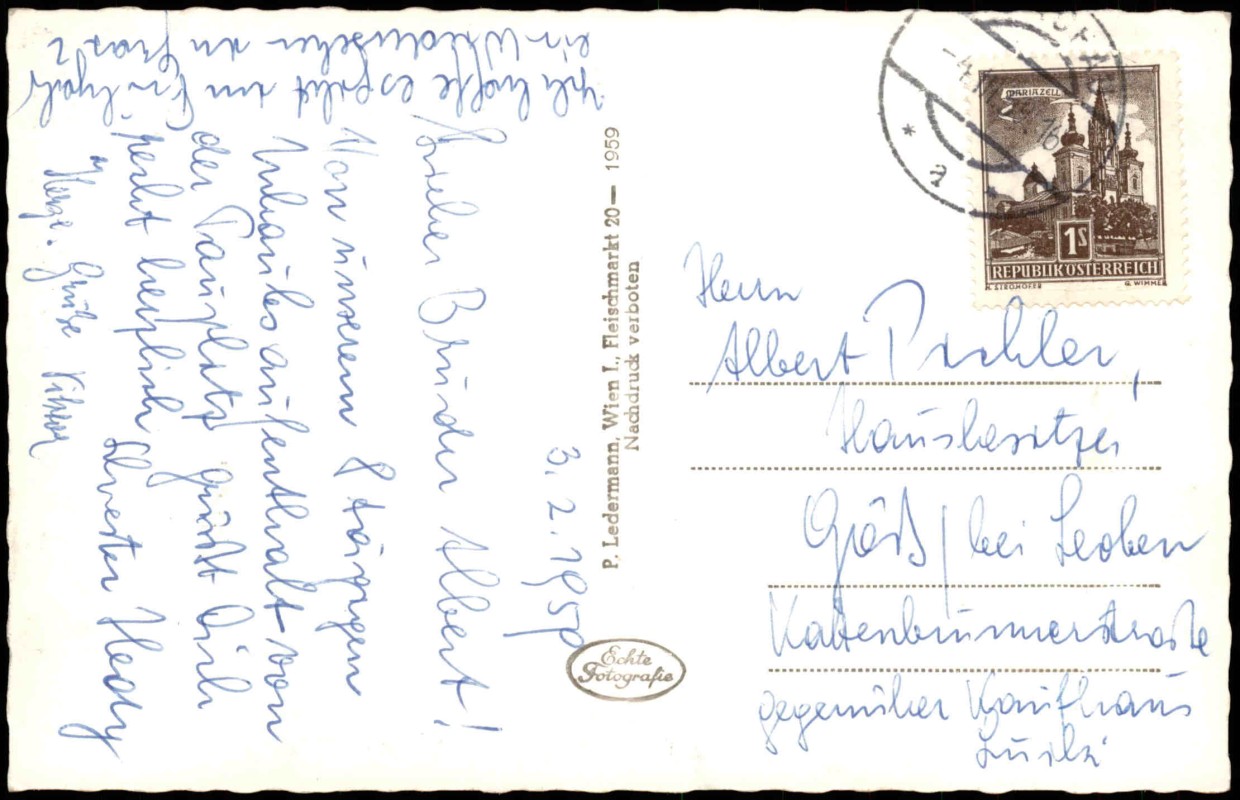 3. 2. 1959
Lieber Bruder Albert!
Von unserem 8 tägigen
Urlaubsaufenthalt von
der Tauplitz grüßt Dich
recht herzlich
Schwester Hedy
Herzl. Grüße Viktor
Ich hoffe es gibt im Frühjahr
ein Wiedersehen in Graz
P. Ledermann, Wien I., Fleischmarkt 20 — 1959
Nachdruck verboten
Echte
Fotografie
MARIAZELL
1S
REPUBLIK ÖSTERREICH
G. WIMMER
Herrn
Albert Pichler,
Hausbesitzer
Göß / bei Leoben
Kaltenbrunnerstraße
gegenüber Kaufhaus